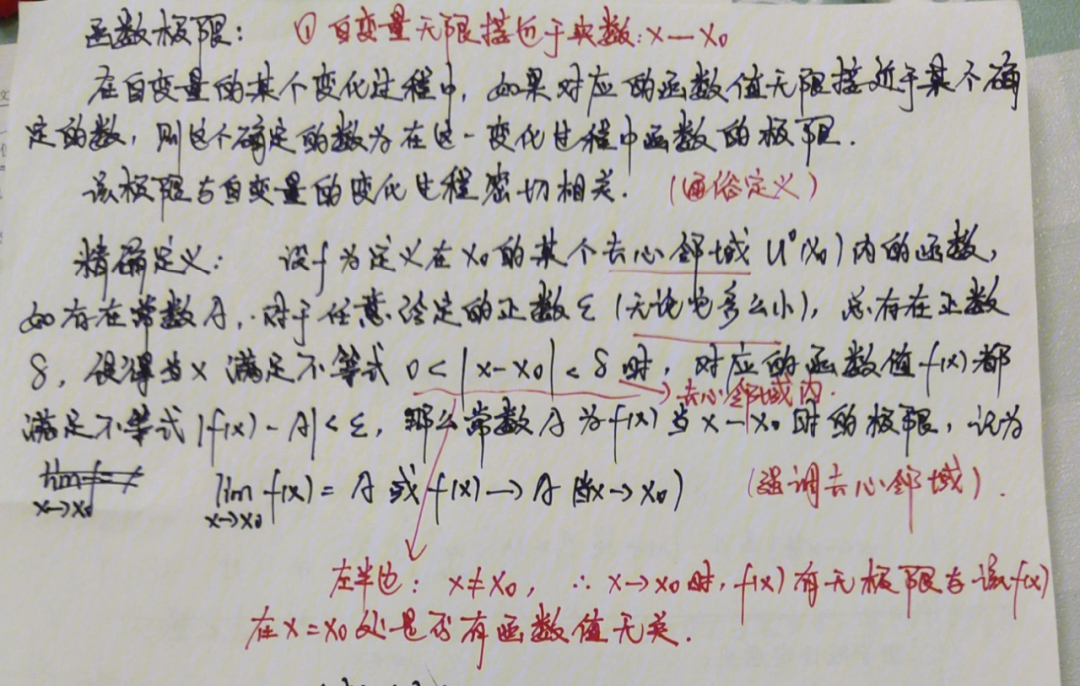 函数极限： ① 自变量无限接近于实数：x—x₀
在自变量的某个变化过程中，如果对应的函数值无限接近于某个确
定的数，则这个确定的数为在这一变化过程中函数的极限．
该极限与自变量的变化过程密切相关．（通俗定义）
精确定义： 设f为定义在x₀的某个去心邻域U°(x₀)内的函数，
如存在常数A，对于任意给定的正数ε（无论它多么小），总存在正数
δ，使得当x满足不等式 0<|x-x₀|<δ时，对应的函数值f(x)都
→去心邻域内．
满足不等式|f(x)-A|<ε，那么常数A为f(x)当x—x₀时的极限，记为
lim f(x)=A 或 f(x)→A (当x→x₀) （强调去心邻域）．
x→x₀ x→x₀
左半边：x≠x₀，∴x→x₀时，f(x)有无极限与该f(x)
在x=x₀处是否有函数值无关．